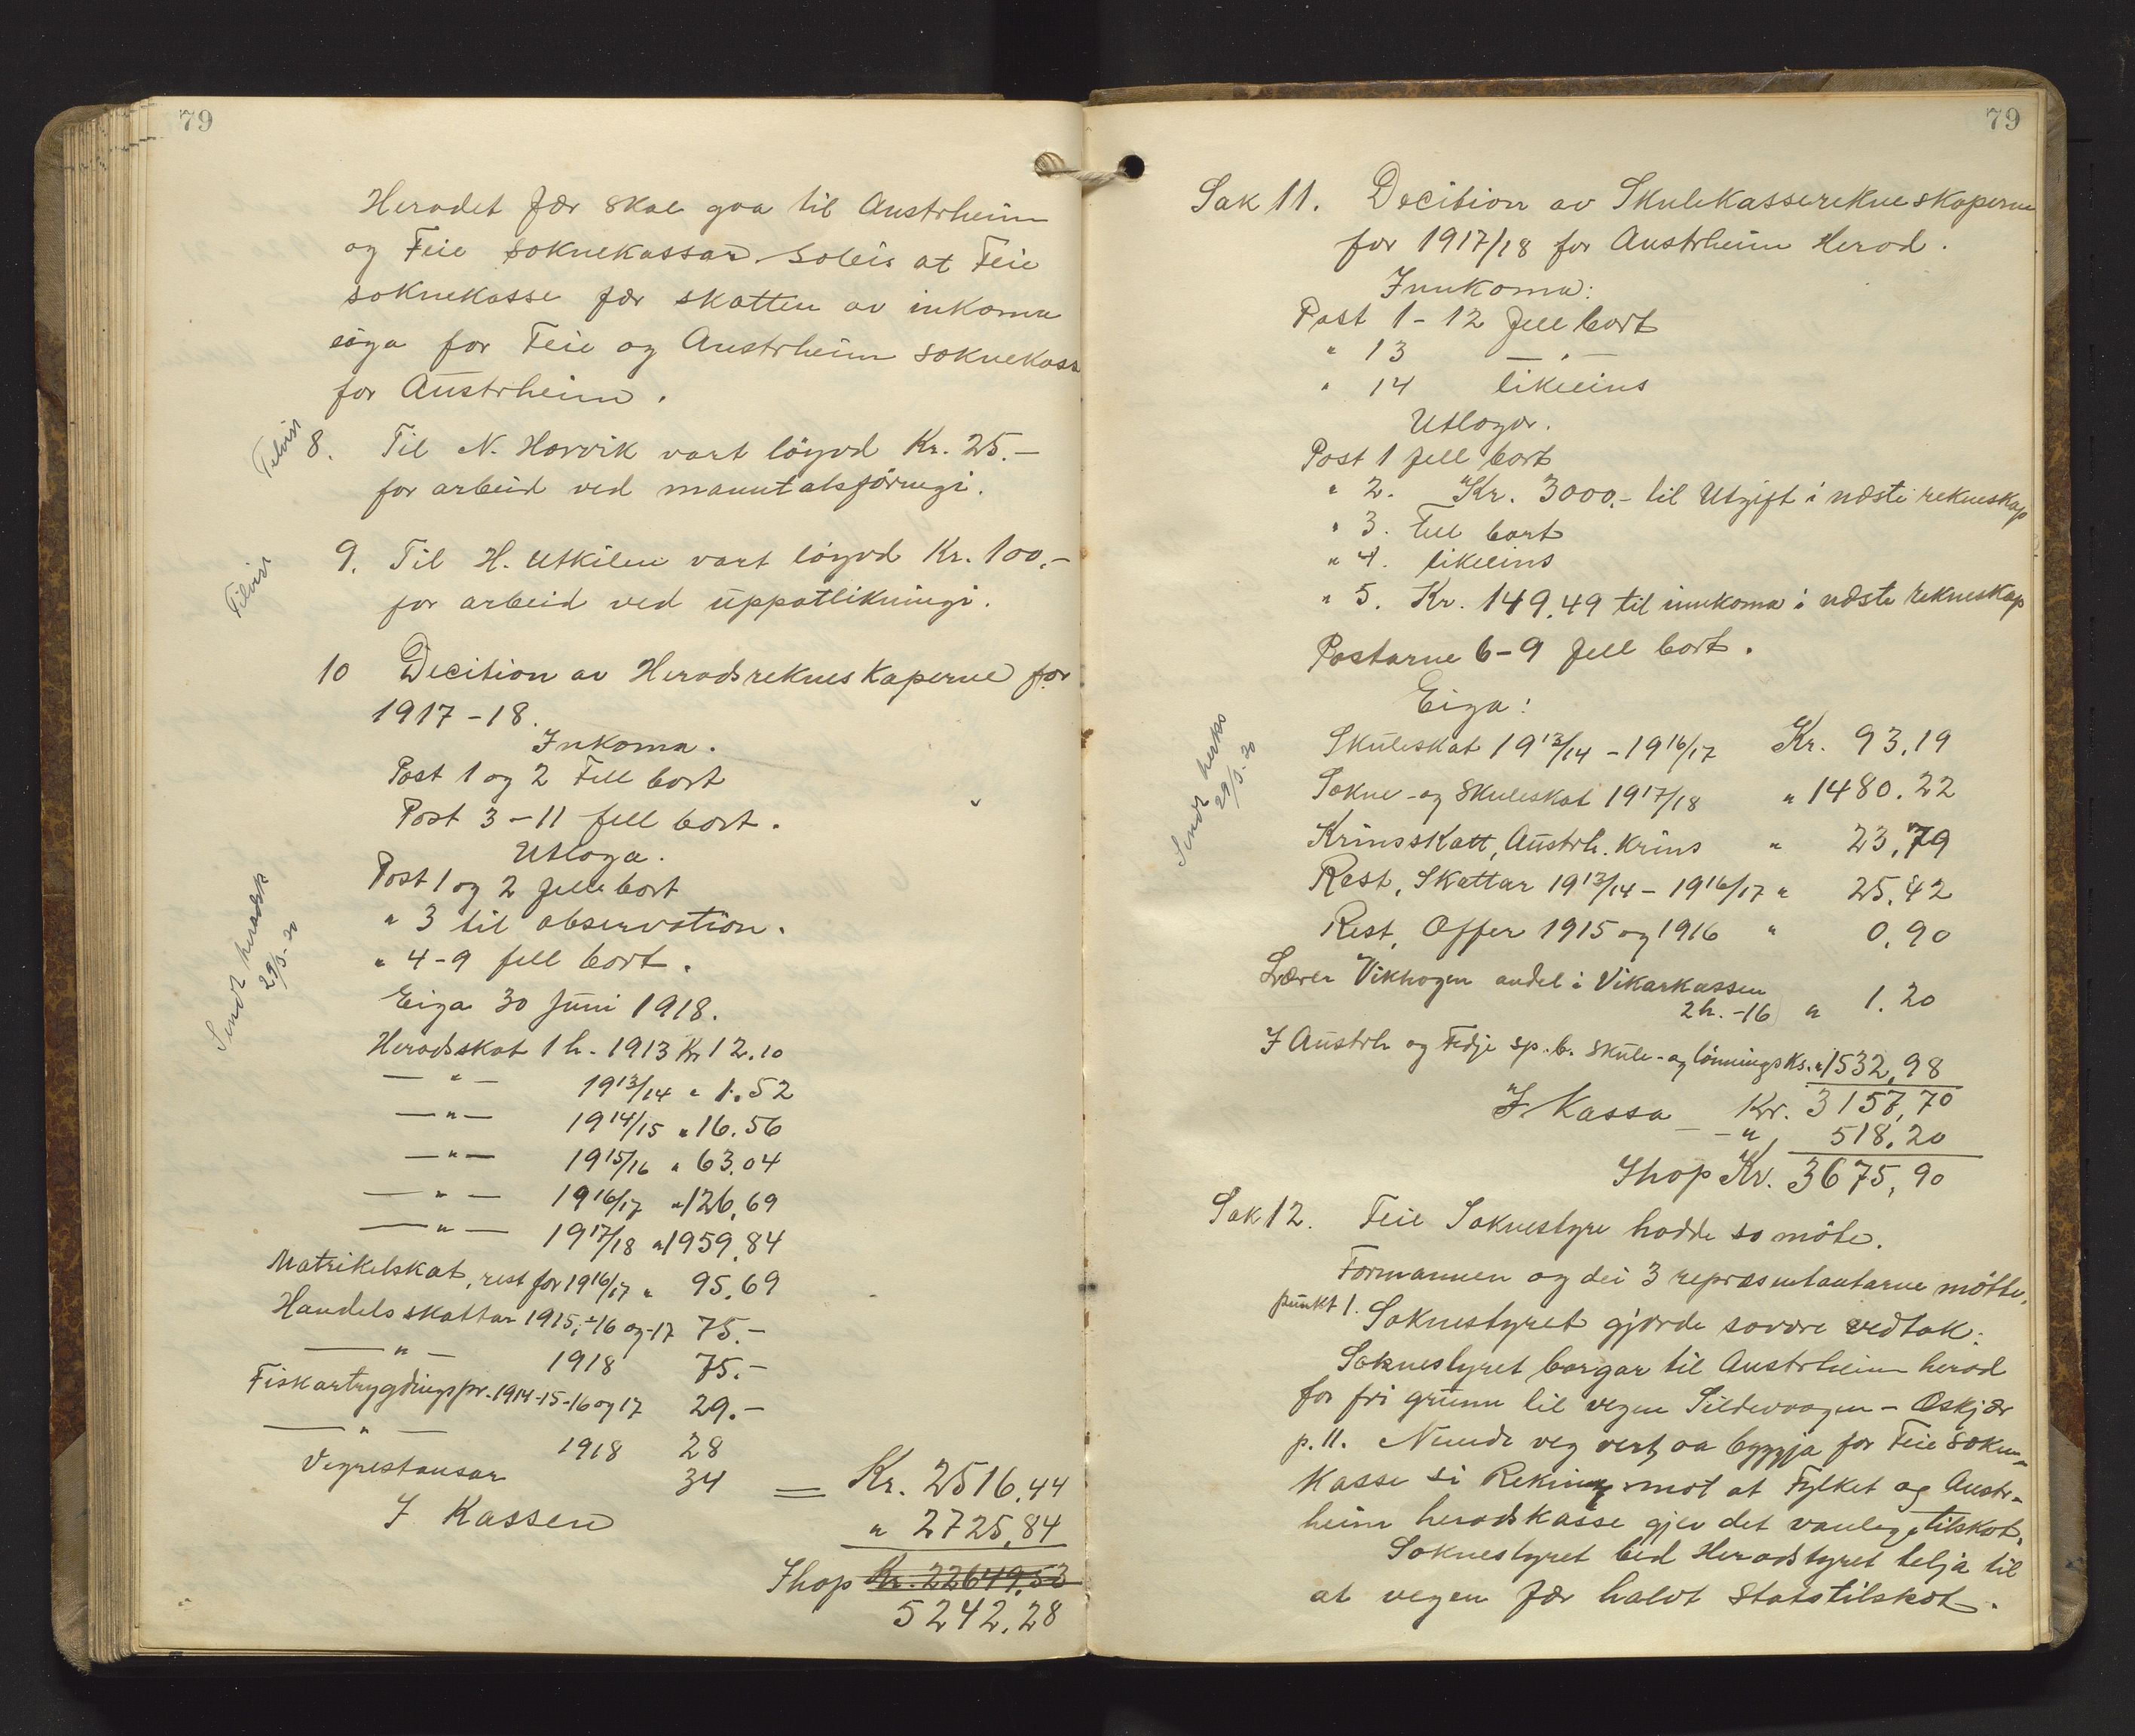 79
Heradet fær skal gaa til Austrheim
og Feie soknekassar. Soleis at Feie
soknekasse fær skatten av inkoma
eiga for Feie og Austrheim soknekassa
for Austrheim.
Tilvist
8. Til N. Harvik vart löyvd Kr. 25.-
for arbeid ved manntalsföringi.
Tilvist
9. Til H. Utkilen vart löyvd Kr. 100.-
for arbeid ved uppatlikningi.
10 Decition av Heradsrekneskaperne for
1917-18.
Inkoma.
Post 1 og 2 Fell bort
Post 3-11 fell bort.
Utloga.
Post 1 og 2 fell bort
" 3 til observation.
" 4-9 fell bort.
Sendt heradsk
29/3-20
Eiga 30 Juni 1918.
Heradsskat 1 h. 1913 Kr 12.10
— " — 1913/14 " 1.52
— " — 1914/15 " 16.56
— " — 1915/16 " 63.04
— " — 1916/17 " 126,69
— " — 1917/18 " 1959,84
Matrikelskat, rest for 1916/17 " 95.69
Handelsskattar 1915, -16 og -17 75.-
— " — 1918 75.-
Fiskartrygdingspr. 1914-15-16 og 17 29.-
— " — 1918 28
Vegrestansar 34 = Kr. 2516,44
I Kassen " 2725,84
Ihop Kr. 22649,53
5242,28
79
Sak 11. Decition av Skulekasserekneskaperne
for 1917/18 for Austrheim Herad.
Innkoma:
Post 1-12 fell bort
" 13 — " —
" 14 likeeins
Utlogor.
Post 1 fell bort
" 2. Kr. 3000.- til Utgift i næste rekneskap
" 3. Fell bort
" 4. likeeins
" 5. Kr. 149,49 til innkoma i næste rekneskap
Postarne 6-9 fell bort.
Eiga:
Sendt herks
29/3-20
Skuleskat 1913/14 - 1916/17 Kr. 93,19
Sokne- og Skuleskat 1917/18 " 1480.22
Krinsskatt, Austrh. Krins " 23,79
Rest, Skattar 1913/14 - 1916/17 " 25,42
Rest, Offer 1915 og 1916 " 0,90
Lærer Vikhagen andel i Vikarkassen
2 h. -16 " 1.20
I Austrh og Fedje sp.b. skule- og lönningsks. " 1532,98
Kr. 3157,70
I Kassa — " 518,20
Ihop Kr. 3675,90
Sak 12. Feie Soknestyre hadde so möte.
Formannen og dei 3 repræsentantarne mötte.
punkt 1. Soknestyret gjorde sovore vedtak:
Soknestyret borgar til Austrheim herad
for fri grunn til vegen Sildevaagen - Oskjær
p. 11. Nemde veg vert aa byggja for Feie sokne-
kasse si Rekning mot at Fylket og Austr-
heim heradskasse gjev det vanlege tilskot.
Soknestyret bed Heradstyret telja til
at vegen fær halvt Statstilskot.